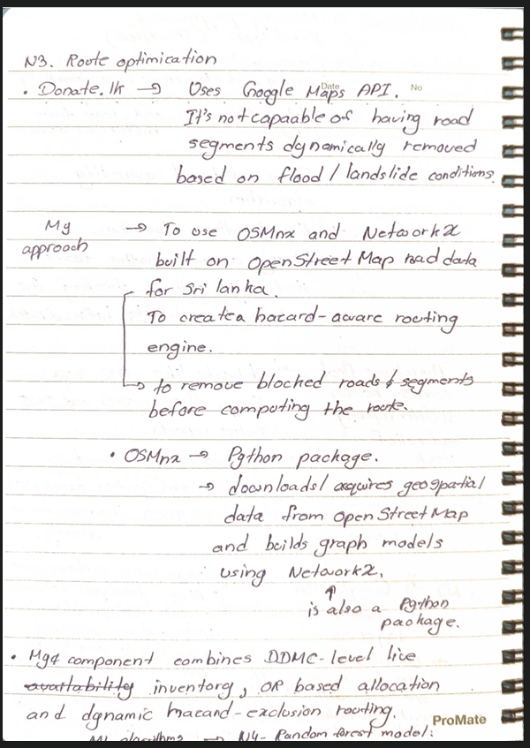 N3. Route optimication
• Donate.lk → Uses Google Maps API.
Date No
It's not capaable of having road
segments dynamically removed
based on flood / landslide conditions.
My approach → To use OSMnx and NetworkX
built on OpenStreet Map road data
for Sri lanka.
To create a hazard-aware routing
engine.
→ to remove blocked roads & segments
before computing the route.
• OSMnx → Python package.
→ downloads/ acquires geospatial
data from OpenStreetMap
and builds graph models
using NetworkX.
↑
is also a Python
package.
• My component combines DDMC-level live
availability inventory, OR based allocation
and dynamic hazard-exclusion routing.
ProMate
ML algorithms → N4- Random forest model: